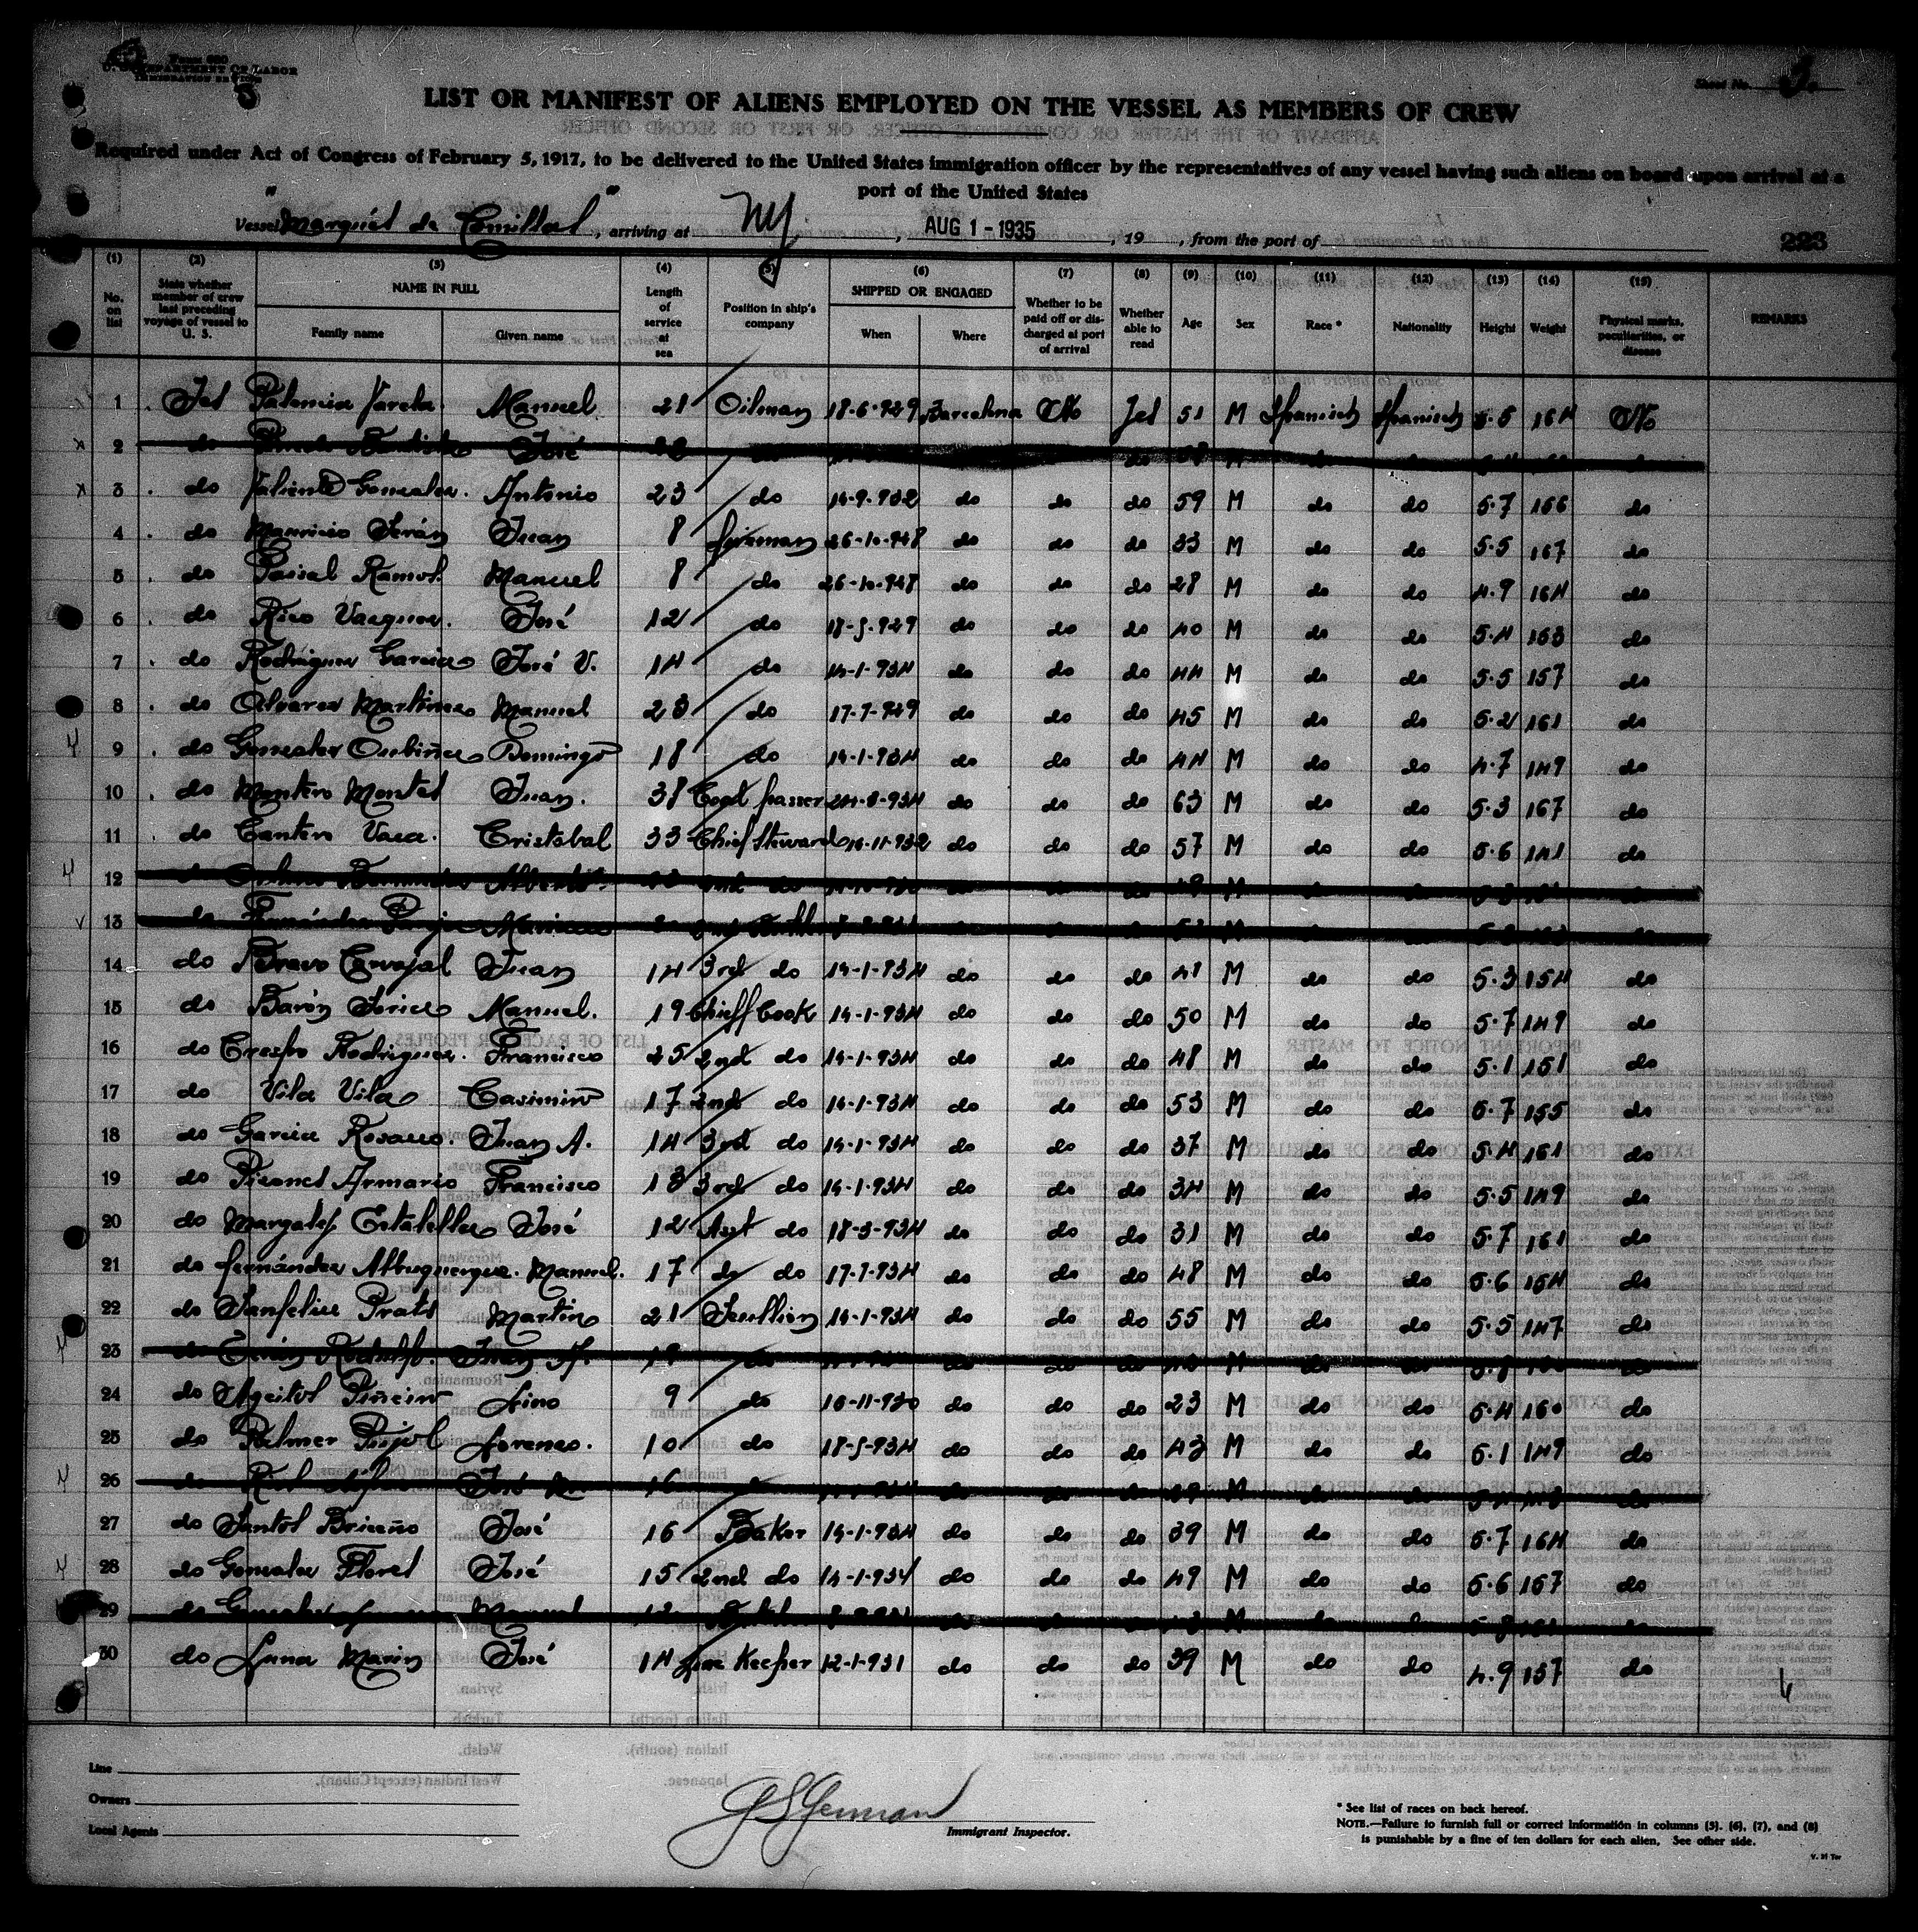 Form 680
U. S. DEPARTMENT OF LABOR
IMMIGRATION SERVICE
Sheet No. 3.
LIST OR MANIFEST OF ALIENS EMPLOYED ON THE VESSEL AS MEMBERS OF CREW
Required under Act of Congress of February 5, 1917, to be delivered to the United States immigration officer by the representatives of any vessel having such aliens on board upon arrival at a
port of the United States
Vessel "Marqués de Comillas", arriving at NY, AUG 1 - 1935, 19 , from the port of
223
(1) (2) (3) (4) (5) (6) (7) (8) (9) (10) (11) (12) (13) (14) (15)
No. on list State whether member of crew last preceding voyage of vessel to U. S. NAME IN FULL Family name Given name Length of service at sea Position in ship's company SHIPPED OR ENGAGED When Where Whether to be paid off or discharged at port of arrival Whether able to read Age Sex Race * Nationality Height Weight Physical marks, peculiarities, or disease REMARKS
1 Yes Varela Manuel 21 Oilman 18-6-929 Barcelona No Yes 51 M Spanish Spanish 5.5 164 No
2 do José do M do do do
3 do Valiente Gonzalez. Antonio 23 do 14-9-932 do do do 59 M do do 5.7 166 do
4 do Mauricio Terán Juan 8 fireman 26-10-928 do do do 33 M do do 5.5 167 do
5 do Pascal Ramos. Manuel 8 do 26-10-928 do do do 28 M do do 4.9 164 do
6 do Rico Vazquez. José 12 do 18-5-929 do do do 40 M do do 5.4 163 do
7 do Rodriguez Garcia José V. 14 do 14-1-934 do do do 44 M do do 5.5 157 do
8 do Alvarez Martinez Manuel 23 do 17-7-929 do do do 45 M do do 5.2 161 do
9 do Gonzalez Outiñea Domingo 18 do 14-1-934 do do do 44 M do do 4.7 149 do
10 do Montero Montes Juan. 38 Coal passer 24-8-934 do do do 63 M do do 5.3 167 do
11 do Cantero Vaca. Cristobal 33 Chief Steward 14-11-932 do do do 57 M do do 5.6 141 do
12 do Alberto. 2nd do do do do M do do do
13 do Fernández do do do M do do do
14 do Bravo Carvajal Juan 14 3rd do 14-1-934 do do do 41 M do do 5.3 154 do
15 do Barón Manuel. 19 Chieff Cook 14-1-934 do do do 50 M do do 5.7 149 do
16 do Crespo Rodriguez. Francisco 25 2nd do 14-1-934 do do do 48 M do do 5.1 151 do
17 do Vila Vila Casimiro 17 2nd do 14-1-934 do do do 53 M do do 5.7 155 do
18 do Garcia Rosado. Juan A. 14 3rd do 14-1-934 do do do 37 M do do 5.4 161 do
19 do Armario Francisco 13 3rd do 14-1-934 do do do 34 M do do 5.5 149 do
20 do Margalef Estalella José 12 Asst do 18-3-934 do do do 31 M do do 5.7 161 do
21 do Fernández Albuquerque. Manuel. 17 do do 17-7-934 do do do 48 M do do 5.6 154 do
22 do Sanfeliu Prats Martin 21 Scullion 14-1-934 do do do 55 M do do 5.5 147 do
23 do Juan 19 do do do do M do do do
24 do Ageitos Piñeiro Lino 9 do 16-11-930 do do do 23 M do do 5.4 160 do
25 do Palmer Pujol Lorenzo. 10 do 18-5-934 do do do 43 M do do 5.1 149 do
26 do José 16 do do do M do do do
27 do Santos Briceño José 16 Baker 14-1-934 do do do 39 M do do 5.7 164 do
28 do Gonzalez Flores José 15 2nd do 14-1-934 do do do 49 M do do 5.6 157 do
29 do Gonzalez Manuel do do do M do do do
30 do Luna Marin José 14 Keeper 12-1-931 do do do 39 M do do 4.9 157 do
Line
Owners
Local Agents
Immigrant Inspector.
* See list of races on back hereof.
NOTE.—Failure to furnish full or correct information in columns (3), (6), (7), and (8)
is punishable by a fine of ten dollars for each alien. See other side.